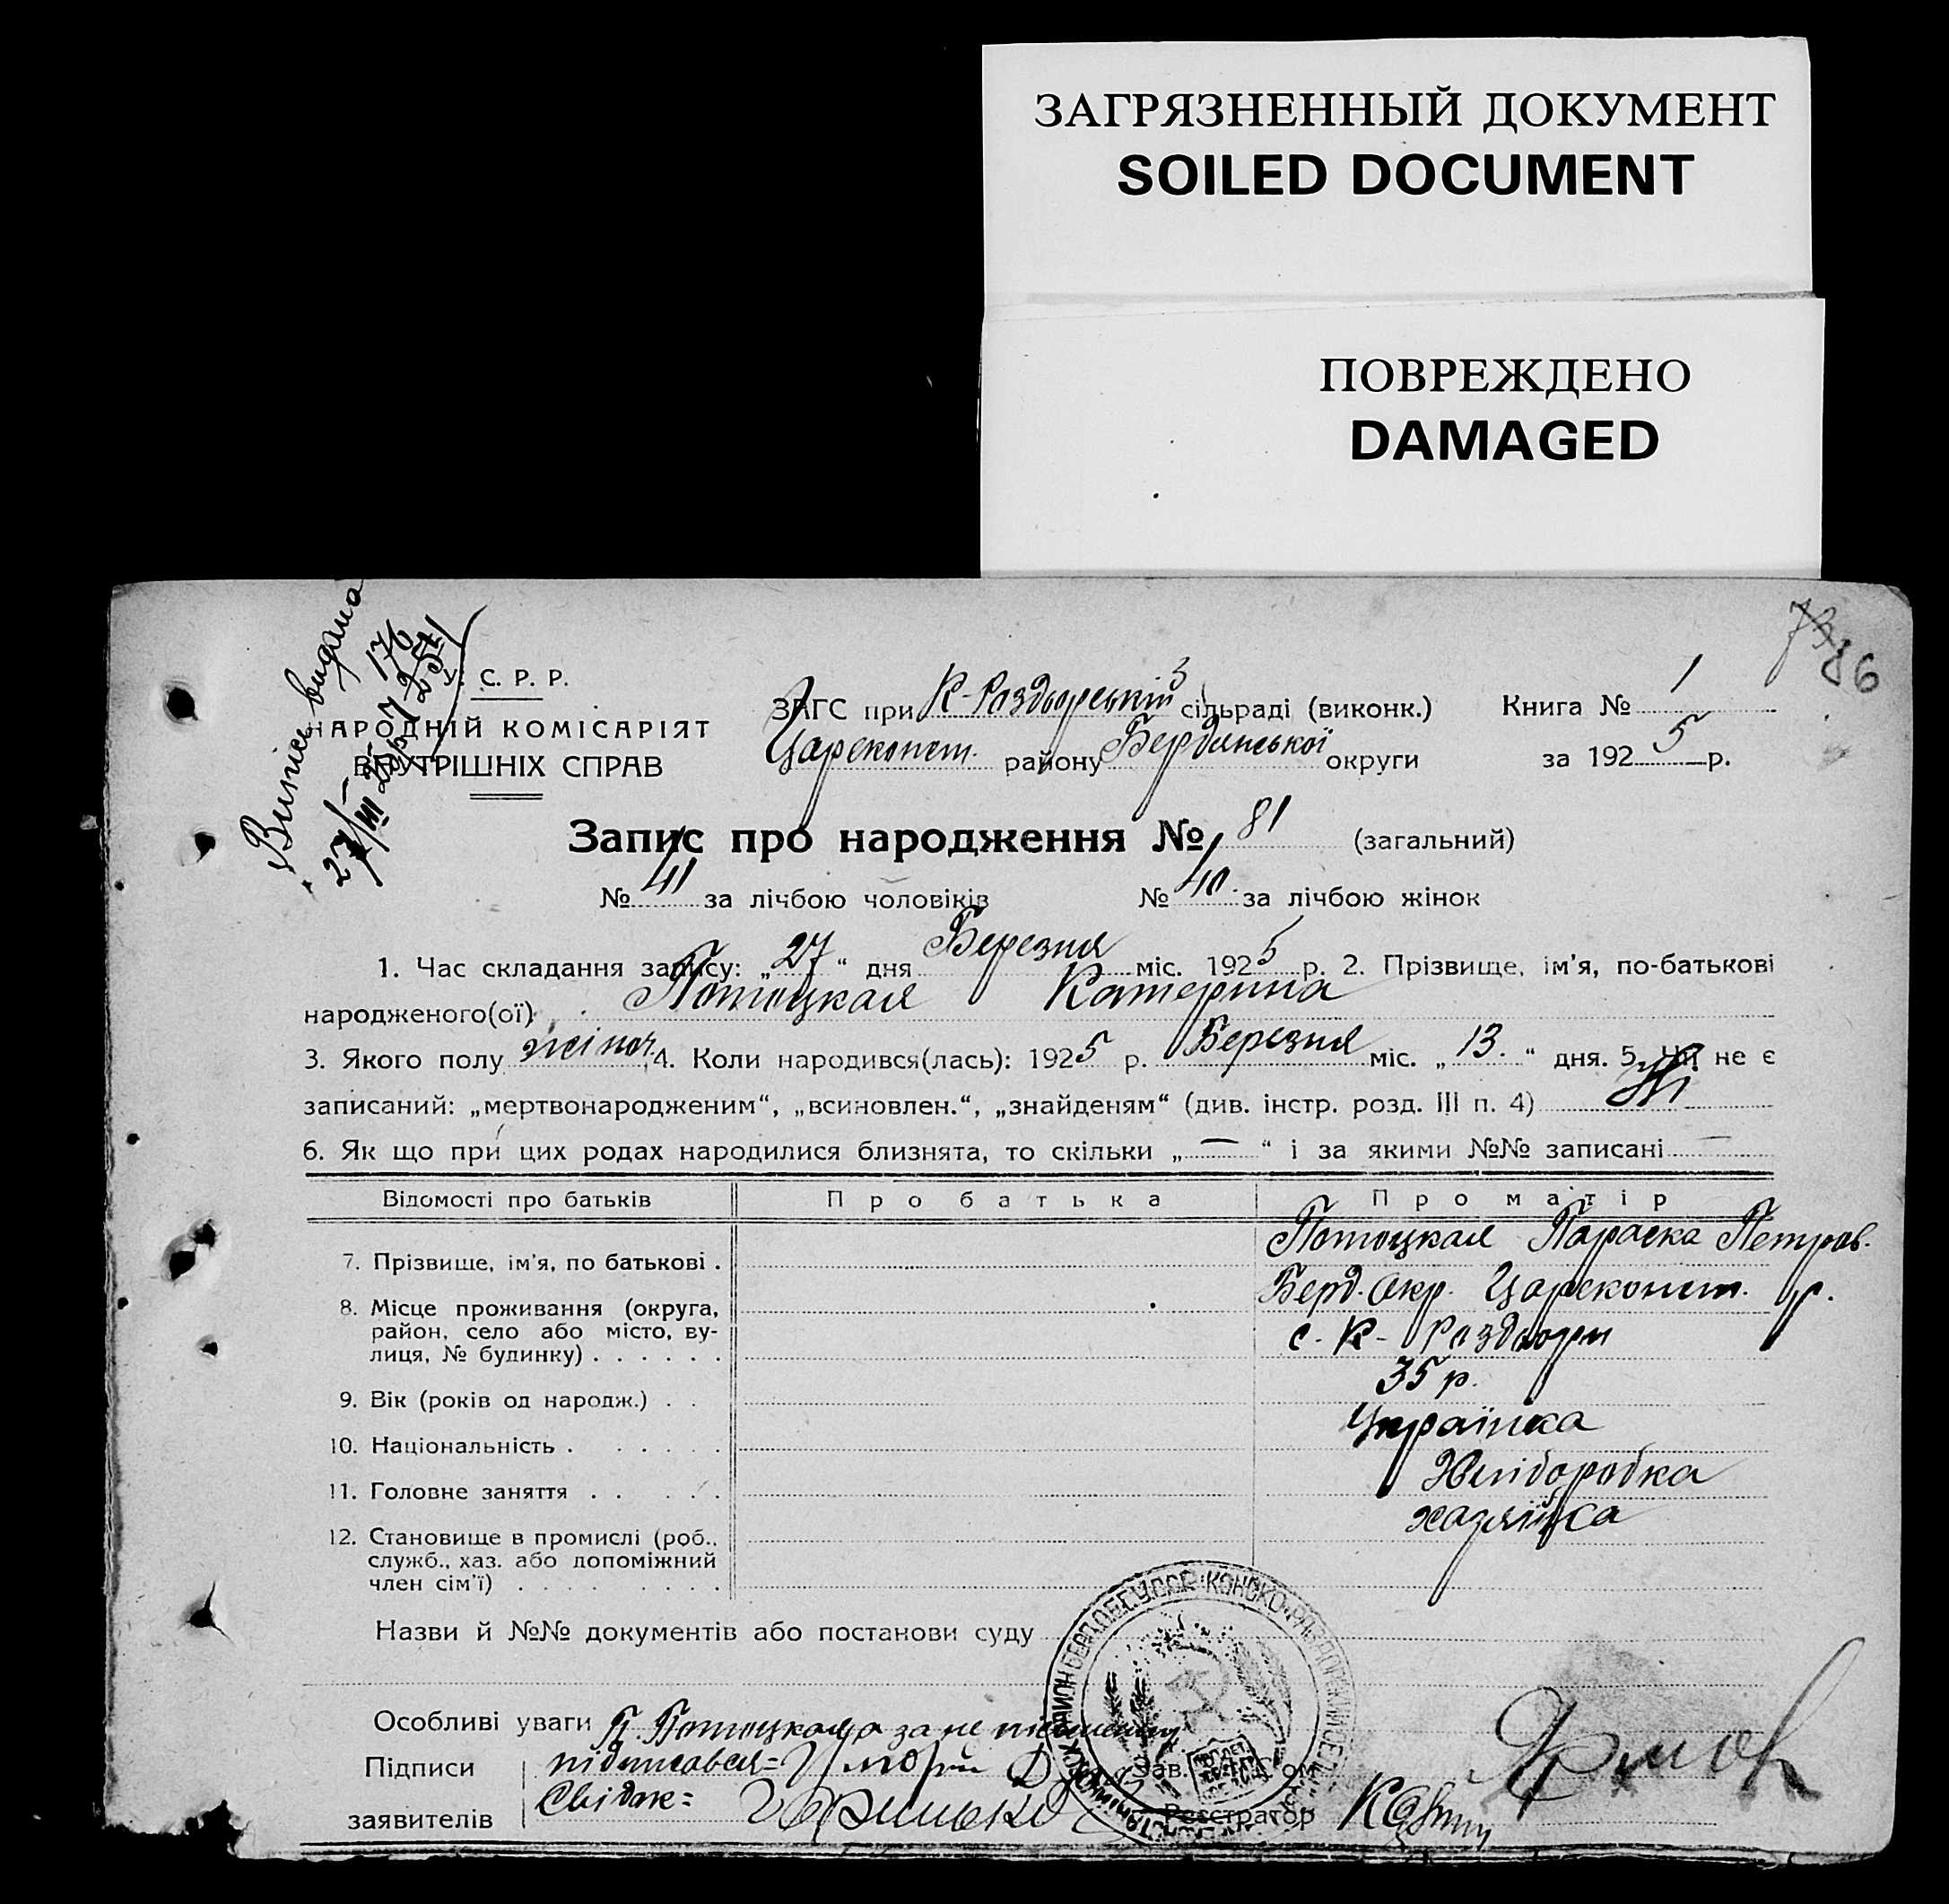 ЗАГРЯЗНЕННЫЙ ДОКУМЕНТ
SOILED DOCUMENT
ПОВРЕЖДЕНО
DAMAGED
73 86
Випись видана
27/III 25р. 176
У. С. Р. Р.
НАРОДНІЙ КОМІСАРІЯТ
ВНУТРІШНІХ СПРАВ
ЗАГС при К-Роздорській сільраді (виконк.)
Цареконст. району Бердянської округи
Книга № 1
за 1925 р.
Запис про народження № 81 (загальний)
№ 41 за лічбою чоловіків № 40 за лічбою жінок
1. Час складання запису: „27“ дня Березня міс. 1925 р. 2. Прізвище, ім’я, по-батькові
народженого(ої) Потоцкая Катерина
3. Якого полу жіноч. 4. Коли народився(лась): 1925 р. Березня міс. „13.“ дня. 5. Чи не є
записаний: „мертвонародженим“, „всиновлен.“, „знайденям“ (див. інстр. розд. III п. 4) Ні
6. Як що при цих родах народилися близнята, то скільки „—“ і за якими №№ записані —
Відомості про батьків Про батька Про матір
7. Прізвище, ім’я, по батькові . Потоцкая Параска Петров.
8. Місце проживання (округа, Берд. Окр. Цареконст. р.
район, село або місто, ву- с. К- Роздори
лиця, № будинку) . . . . . .
9. Вік (років од народж.) . . 35 р.
10. Національність . . . . . . Українка
11. Головне заняття . . . . . Хліборобка
12. Становище в промислі (роб., хазяйка
служб., хаз. або допоміжний
член сім’ї) . . . . . . . .
Назви й №№ документів або постанови суду
Особливі уваги П. Потоцкая а за не письменну
Підписи підписався=
заявителів Свідок:
Зав. ЗАГС’ом
Реєстратор